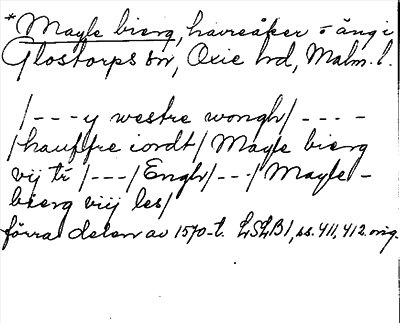 *Magle bierg, havreåker o äng i
Glostorps sn, Oxie hd, Malm. l.
/---y westre wongh/----
/hauffre iordt/Magle bierg
vij tr̄/---/Engh/---/Magle-
bierg viij les/
förra delen av 1570-t. LSLB1, ss. 411, 412 orig.